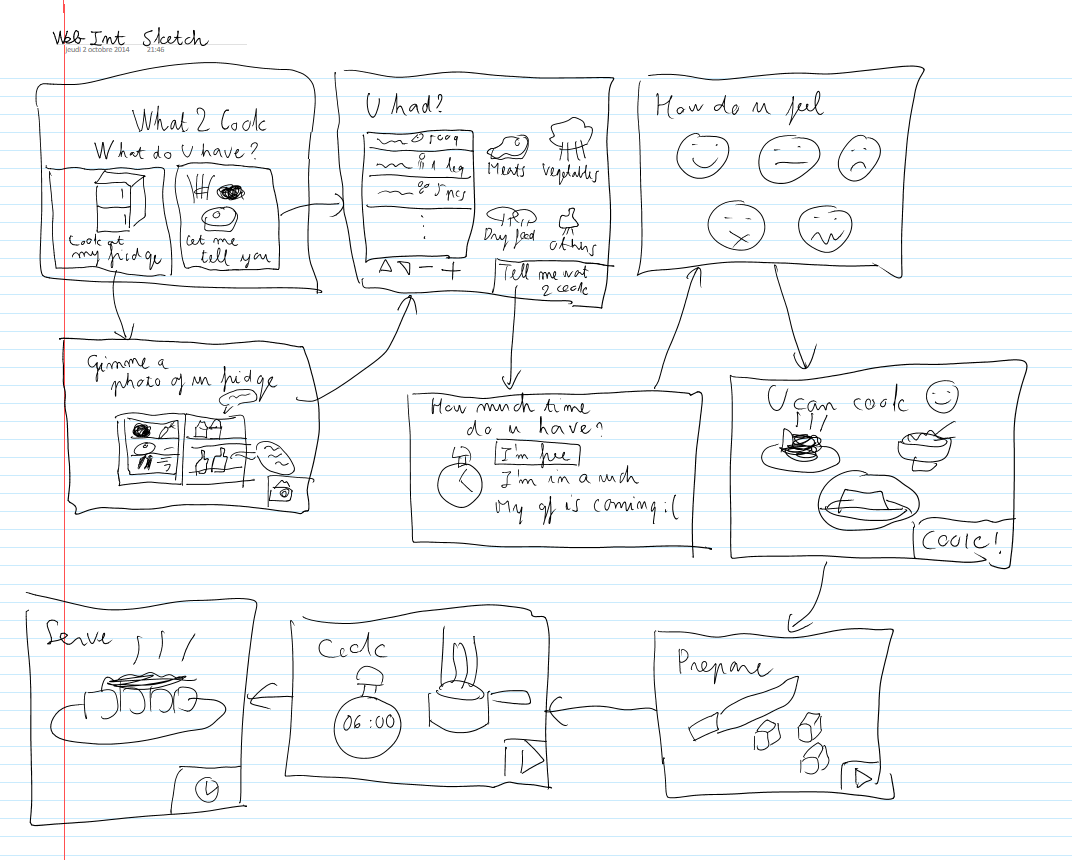 Web Int Sketch
jeudi 2 octobre 2014 21:46
What 2 Cook
What do U have?
Look at
my fridge
Let me
tell you
U had?
500g
1 leg
5 pcs
Meats
Vegetables
Dry food
Others
Tell me wat
2 cook
How do u feel
Gimme a
photo of ur fridge
How much time
do u have?
I'm free
I'm in a rush
My gf is coming :(
U can cook
Cook!
Prepare
Cook
06:00
Serve